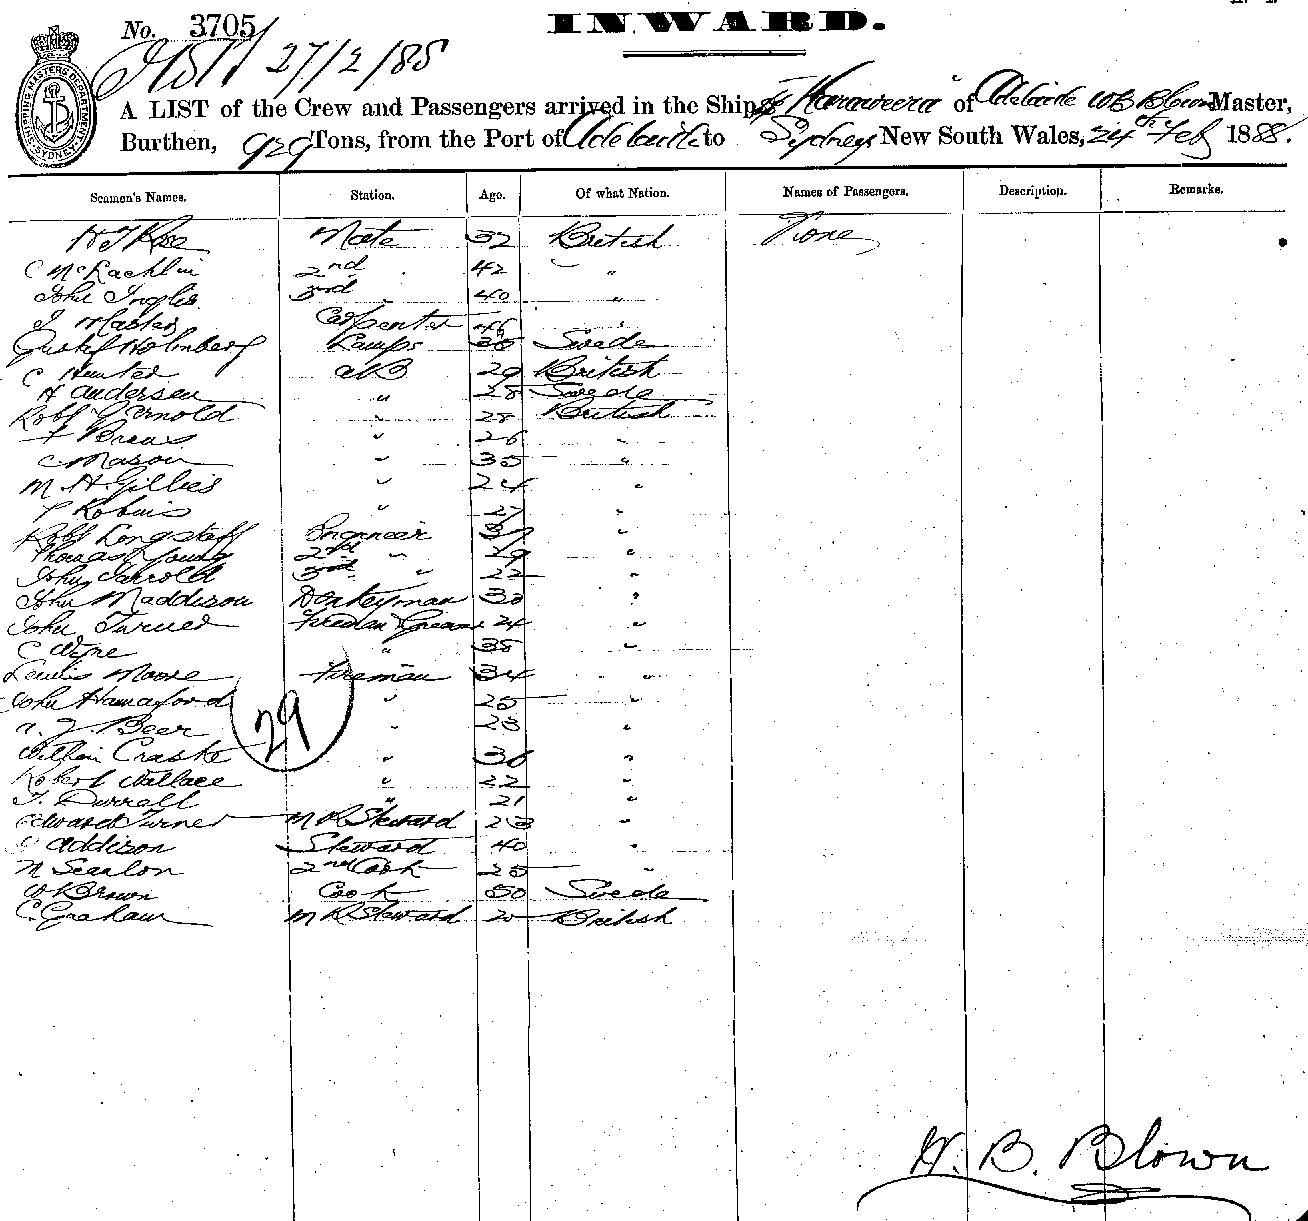 No. 3705
INWARD.
27/2/88
A LIST of the Crew and Passengers arrived in the Ship Kanaweera of Adelaide W B Blown Master,
Burthen, 929 Tons, from the Port of Adelaide to Sydney New South Wales, 24th Feb 1888.
Seamen's Names. Station. Age. Of what Nation. Names of Passengers. Description. Remarks.
H J Rose Mate 32 British None
C McLachlin 2nd " 42 " "
John Inglis 3rd " 40 "
J Masters Carpenter 46 "
Gustaf Holmberg Lamps 36 Swede
C Hunter AB 29 British
H Andersen " 28 Swede
Robt Arnold " 28 British
F " 26 "
C Mason " 35 "
M H Gillies " 24 "
Robins " 27 "
Robt Longstaff Engineer "
Thomas Young 2nd " 29 "
John Jarrold 3rd " 22 "
John Maddison Donkeyman 30 "
John Turner Fireman Greaser 24 "
C Wyne " 38 "
Lewis Moore Fireman 34 " "
John Hannaford " 25 "
29
Beer " 23 "
William Craske " 36 "
Robert Wallace " 22 "
J. Durrall " 21 "
Edward Turner M R Steward 23 "
Addison Steward 40 "
M Scanlon 2nd Cook 25 "
W Brown Cook 50 Swede
C. Graham M R Steward 20 British
W. B. Blown